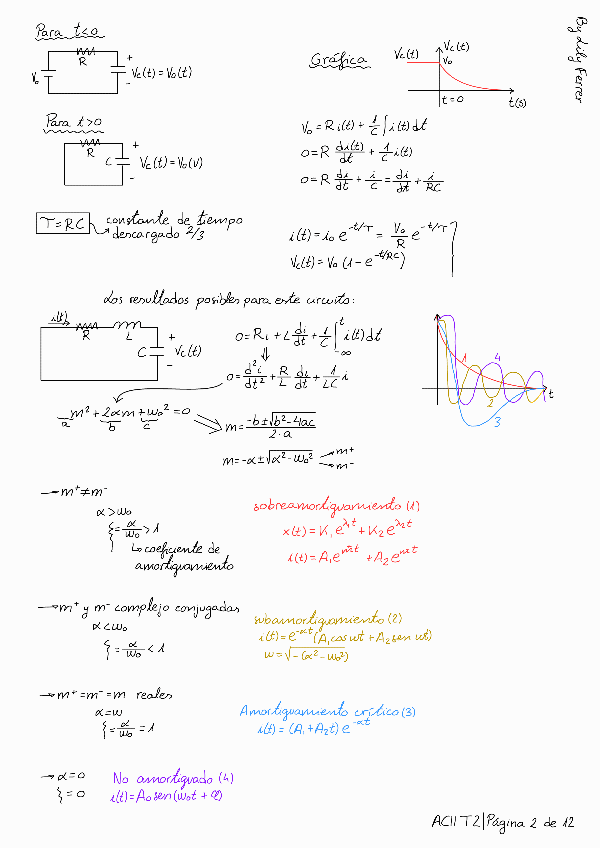 By Lily Ferrer
Para t<0
R
V₀
+
-
Vc(t) = V₀(t)
Gráfica
Vc(t)
Vc(t)
V₀
t=0
t(s)
Para t>0
R
C
+
-
Vc(t) = V₀(v)
V₀ = R i(t) + 1/C ∫ i(t) dt
0 = R di(t)/dt + 1/C i(t)
0 = R di/dt + i/C = di/dt + i/RC
T = RC
constante de tiempo
descargado 2/3
i(t) = i₀ e^(-t/T) = V₀/R e^(-t/T)
Vc(t) = V₀ (1 - e^(-t/RC))
Los resultados posibles para este circuito:
i(t)
R
L
C
+
-
Vc(t)
0 = Ri + L di/dt + 1/C ∫_(-∞)^t i(t) dt
0 = d²i/dt² + R/L di/dt + 1/LC i
m² + 2αm + w₀² = 0
a b c
m = (-b ± √(b² - 4ac))/(2·a)
m = -α ± √(α² - w₀²)
m⁺
m⁻
1
4
2
3
t
→ m⁺ ≠ m⁻
α > w₀
ξ = α/w₀ > 1
↳ coeficiente de
amortiguamiento
sobreamortiguamiento (1)
x(t) = K₁e^(λ₁t) + K₂e^(λ₂t)
i(t) = A₁e^(m⁺t) + A₂e^(m⁻t)
→ m⁺ y m⁻ complejo conjugadas
α < w₀
ξ = α/w₀ < 1
subamortiguamiento (2)
i(t) = e^(-αt) (A₁cos wt + A₂sen wt)
w = √(-(α² - w₀²))
→ m⁺ = m⁻ = m reales
α = w
ξ = α/w₀ = 1
Amortiguamiento crítico (3)
i(t) = (A₁ + A₂t) e^(-αt)
→ α = 0
ξ = 0
No amortiguado (4)
i(t) = A₀ sen(w₀t + φ)
ACII T2 | Página 2 de 12